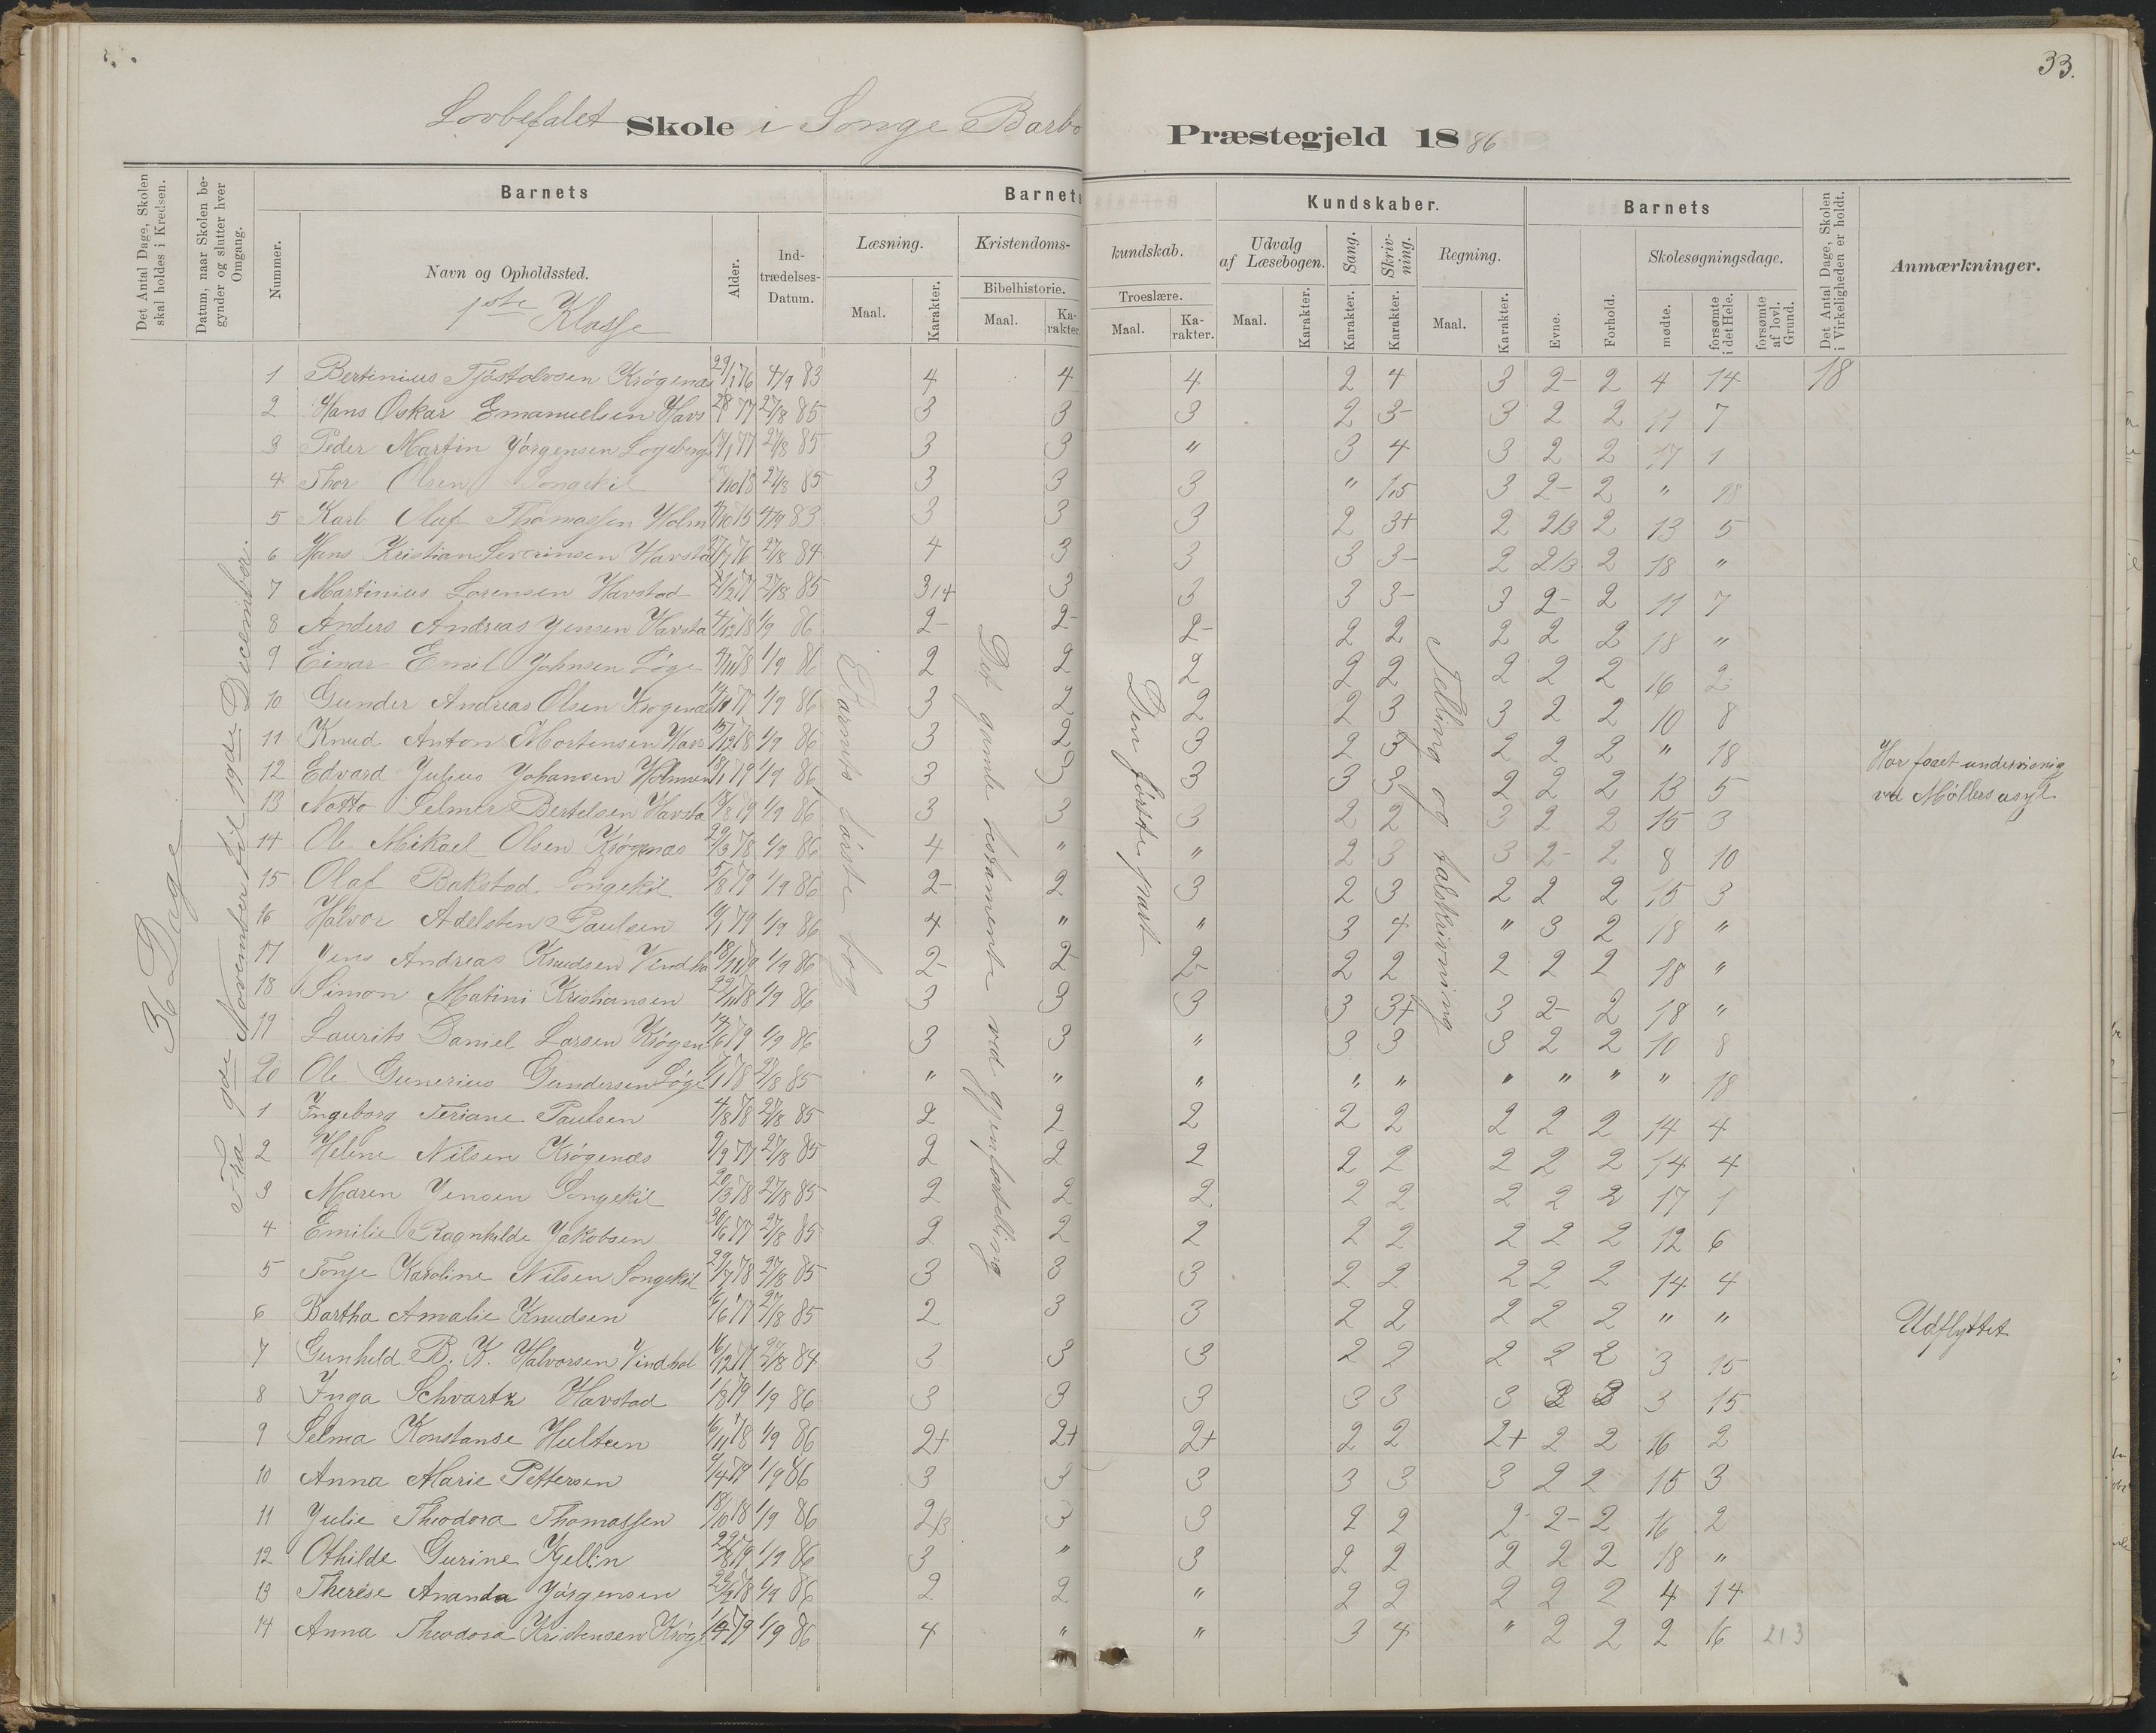 33.
Lovbefalet Skole i Songe Barbo Præstegjeld 1886
Det Antal Dage, Skolen skal holdes i Kredsen.
Datum, naar Skolen begynder og slutter hver Omgang.
Barnets
Barnets
Kundskaber.
Barnets
Det Antal Dage, Skolen i Virkeligheden er holdt.
Anmærkninger.
Nummer.
Navn og Opholdssted.
1ste Klasse
Alder.
Indtrædelses-Datum.
Læsning.
Kristendoms-
kundskab.
Udvalg af Læsebogen.
Sang.
Skrivning.
Regning.
Evne.
Forhold.
Skolesøgningsdage.
Bibelhistorie.
Troeslære.
Maal. Karakter. Maal. Karakter. Maal. Karakter. Maal. Karakter. Karakter. Karakter. Maal. Karakter. mødte. forsømte i det Hele. forsømte af lovl. Grund.
36 Dage
Fra 9de November til 19de December.
Barnets første bog
Det gamle testamente ved gjenfortelling
Den første part
Telling og talskrivning
1 Bertinius Tjøstolvsen Krøgenæs 29/1 76 4/9 83 4 4 4 2 4 3 2- 2 4 14 18
2 Hans Oskar Emanuelsen Havs 27/8 85 3 3 3 2 3- 3 2 2 11 7
3 Peder Martin Jørgensen Logeberg 27/8 85 3 3 " 3 4 3 2 2 17 1
4 Thor Olsen Songekil 27/8 85 3 3 3 " 3 2- 2 "
5 Karl Oluf Thomassen Holm 4/9 83 3 3 3 2 3+ 2 2/3 2 13 5
6 Hans Kristian Severinsen Havstad 27/8 84 4 3 3 3 3- 2 2/3 2 18 "
7 Martinius Lorensen Havstad 27/8 85 3/4 3 3 3 3- 3 2- 2 11 7
8 Anders Andreas Jensen Havsta 4/12 78 1/9 86 2- 2- 2- 2 2 2 2 2 18 "
9 Einar Emil Johnsen Løge 1/9 86 2 2 2 2 2 2 2 2 16 2
10 Gunder Andreas Olsen Krøgenæs 1/9 86 3 2 2 2 3 3 2 2 10 8
11 Knud Anton Mortensen Havs 15/12 78 1/9 86 3 2 3 2 3 2 2 2 " 18 Har faaet undervisnig
12 Edvard Julius Johansen Holmen 18/1 79 1/9 86 3 3 3 3 3 2 2 2 13 5 ved Møllers asyl
13 Notto Selmer Bertelsen Havsta 1/9 86 3 3 3 2 2 3 2 2 15 3
14 Ole Mikael Olsen Krøgenæs 29/3 78 1/9 86 4 " " 2 3 3 2- 2 8 10
15 Olaf Bakstad Songekil 5/8 79 1/9 86 2- 2 3 2 3 2 2 2 15 3
16 Halvor Adelsten Paulsen 1/9 86 4 " " 3 4 " 3 2 18 "
17 Jens Andreas Knudsen Vindho 1/9 86 2- 2- 2- 2 2 2 2 2 18 "
18 Simon Matini Kristiansen 22/11 78 1/9 86 3 3 3 3 3+ 3 2- 2 18 "
19 Laurits Daniel Larsen Krøgen 14/6 79 1/9 86 3 3 " 3 3 3 2 2 10 8
20 Ole Gunerius Gundersen Løge 27/8 85 " " " " " " " " " 18
1 Ingeborg Teriane Paulsen 4/8 78 27/8 85 2 2 2 2 2 2 2 2 14 4
2 Helene Nilsen Krøgenæs 9/9 77 27/8 85 2 2 2 2 2 2 2 2 14 4
3 Maren Jensen Songekil 20/3 78 27/8 85 2 2 2 2 2 2 2 2 17 1
4 Emilie Ragnhilde Jakobsen 30/6 77 27/8 85 2 2 2 2 2 2 2 2 12 6
5 Tonje Karoline Nilsen Songekil 29/7 78 27/8 85 3 3 3 2 2 2 2 2 14 4
6 Bartha Amalie Knudsen 16/6 77 27/8 85 2 3 3 2 2 2 2 2 " " Udflyttet
7 Gunhild B. K. Halvorsen Vindhol 16/12 77 27/8 84 3 3 3 2 2 2 2 2 3 15
8 Inga Schvartz Havstad 1/8 79 1/9 86 3 3 3 3 3 3 3 15
9 Selma Konstanse Hulteen 16/11 78 1/9 86 2+ 2+ 2+ 2 2 2+ 2 2 16 2
10 Anna Marie Pettersen 1/9 86 3 3 3 3 3 3 2 2 15 3
11 Julie Theodora Thomassen 18/10 78 1/9 86 2/3 3 3 2 2 2- 2- 2 16 2
12 Othilde Gurine Kjellin 1/9 86 3 " 3 2 2 2 2 2 18 "
13 Therése Ananda Jørgensen 1/9 86 2 2 " 2 2 2 2 2 4 14
14 Anna Theodora Kristensen Krøg 1/9 86 4 " " 3 4 " 2 2 2 16 213